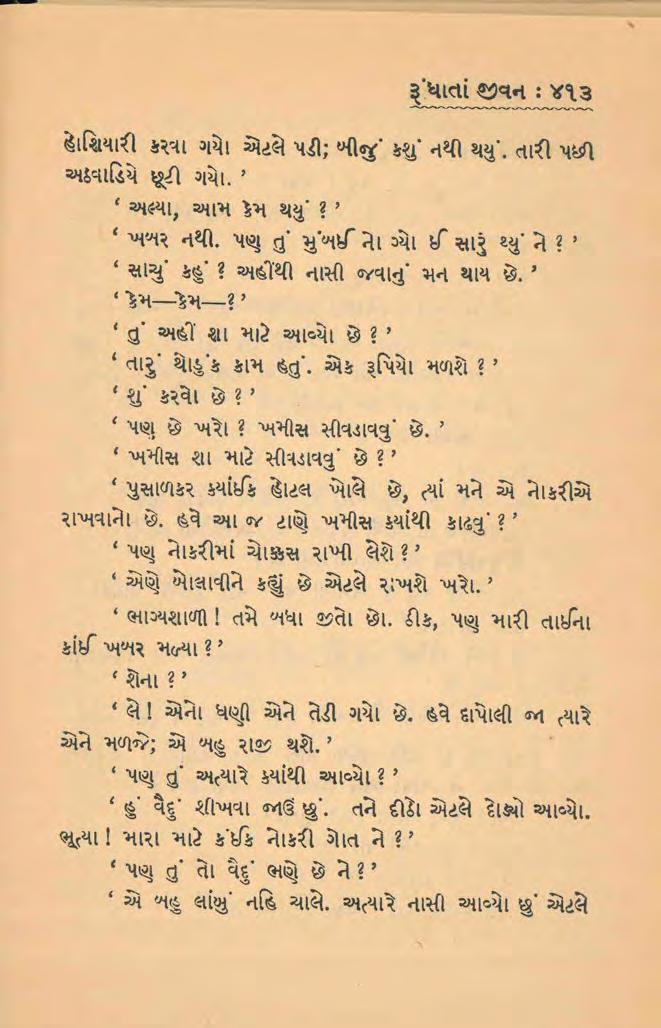 રૂંધાતાં જીવન : ૪૧૩
હોશિયારી કરવા ગયો એટલે પડી; બીજું કશું નથી થયું. તારી પછી
અઠવાડિયે છૂટી ગયો. ’
‘ અલ્યા, આમ કેમ થયું ? ’
‘ ખબર નથી. પણ તું મુંબઈ નો ગ્યો ઈ સારું થ્યું ને ? ’
‘ સાચું કહું ? અહીંથી નાસી જવાનું મન થાય છે. ’
‘ કેમ—કેમ—? ’
‘ તું અહીં શા માટે આવ્યો છે ? ’
‘ તારું થોડુંક કામ હતું. એક રૂપિયો મળશે ? ’
‘ શું કરવો છે ? ’
‘ પણ છે ખરો ? ખમીસ સીવડાવવું છે. ’
‘ ખમીસ શા માટે સીવડાવવું છે ? ’
‘ પુસાળકર ક્યાંઈક હોટલ ખોલે છે, ત્યાં મને એ નોકરીએ
રાખવાનો છે. હવે આ જ ટાણે ખમીસ ક્યાંથી કાઢવું ? ’
‘ પણ નોકરીમાં ચોક્કસ રાખી લેશે ? ’
‘ એણે બોલાવીને કહ્યું છે એટલે રાખશે ખરો. ’
‘ ભાગ્યશાળી ! તમે બધા જીતો છો. ઠીક, પણ મારી તાઈના
કાંઈ ખબર મળ્યા ? ’
‘ શેના ? ’
‘ લે ! એનો ધણી એને તેડી ગયો છે. હવે દાપોલી જા ત્યારે
એને મળજે; એ બહુ રાજી થશે. ’
‘ પણ તું અત્યારે ક્યાંથી આવ્યો ? ’
‘ હું વૈદું શીખવા જાઉં છું. તને દીઠો એટલે દોડ્યો આવ્યો.
ભૂત્યા ! મારા માટે કંઈક નોકરી ગોત ને ? ’
‘ પણ તું તો વૈદું ભણે છે ને ? ’
‘ એ બહુ લાંબું નહિ ચાલે. અત્યારે નાસી આવ્યો છું એટલે